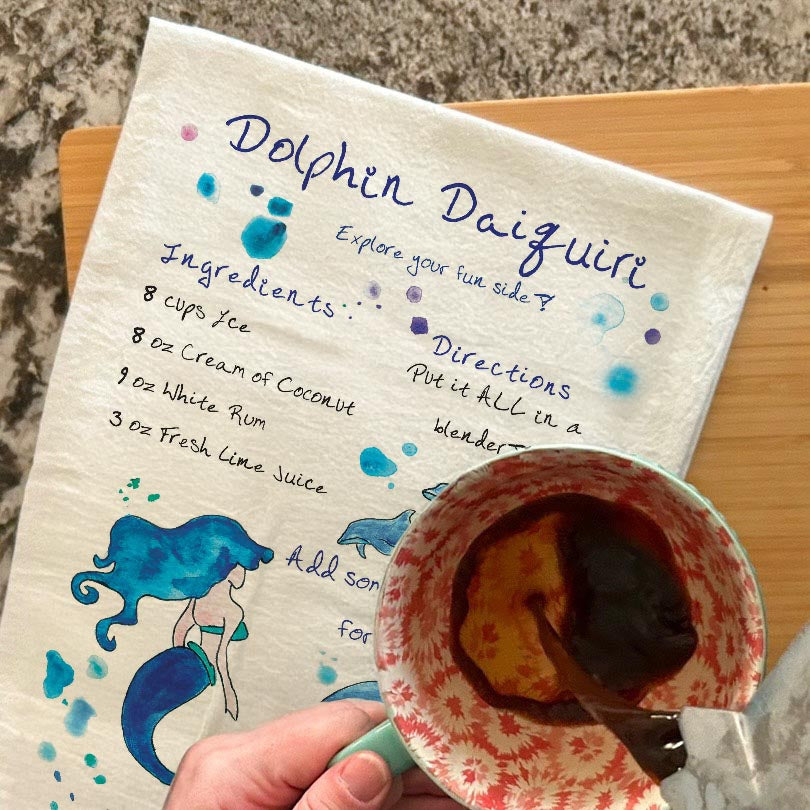 Dolphin Daiquiri
Explore your fun side
Ingredients
8 cups Ice
8 oz Cream of Coconut
9 oz White Rum
3 oz Fresh Lime Juice
Directions
Put it ALL in a
blender
Add
for